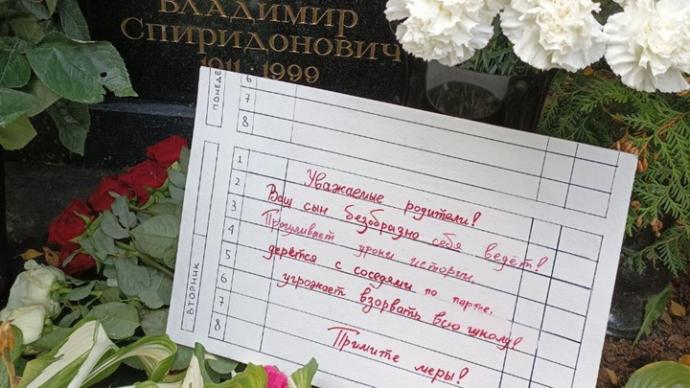 ВЛАДИМИР
СПИРИДОНОВИЧ
1911-1999
ПОНЕДЕ
6
7
8
ВТОРНИК
1
2
3
4
5
6
7
8
Уважаемые родители!
Ваш сын безобразно себя ведёт!
Прогуливает уроки истории,
дерётся с соседями по парте,
угрожает взорвать всю школу!
Примите меры!